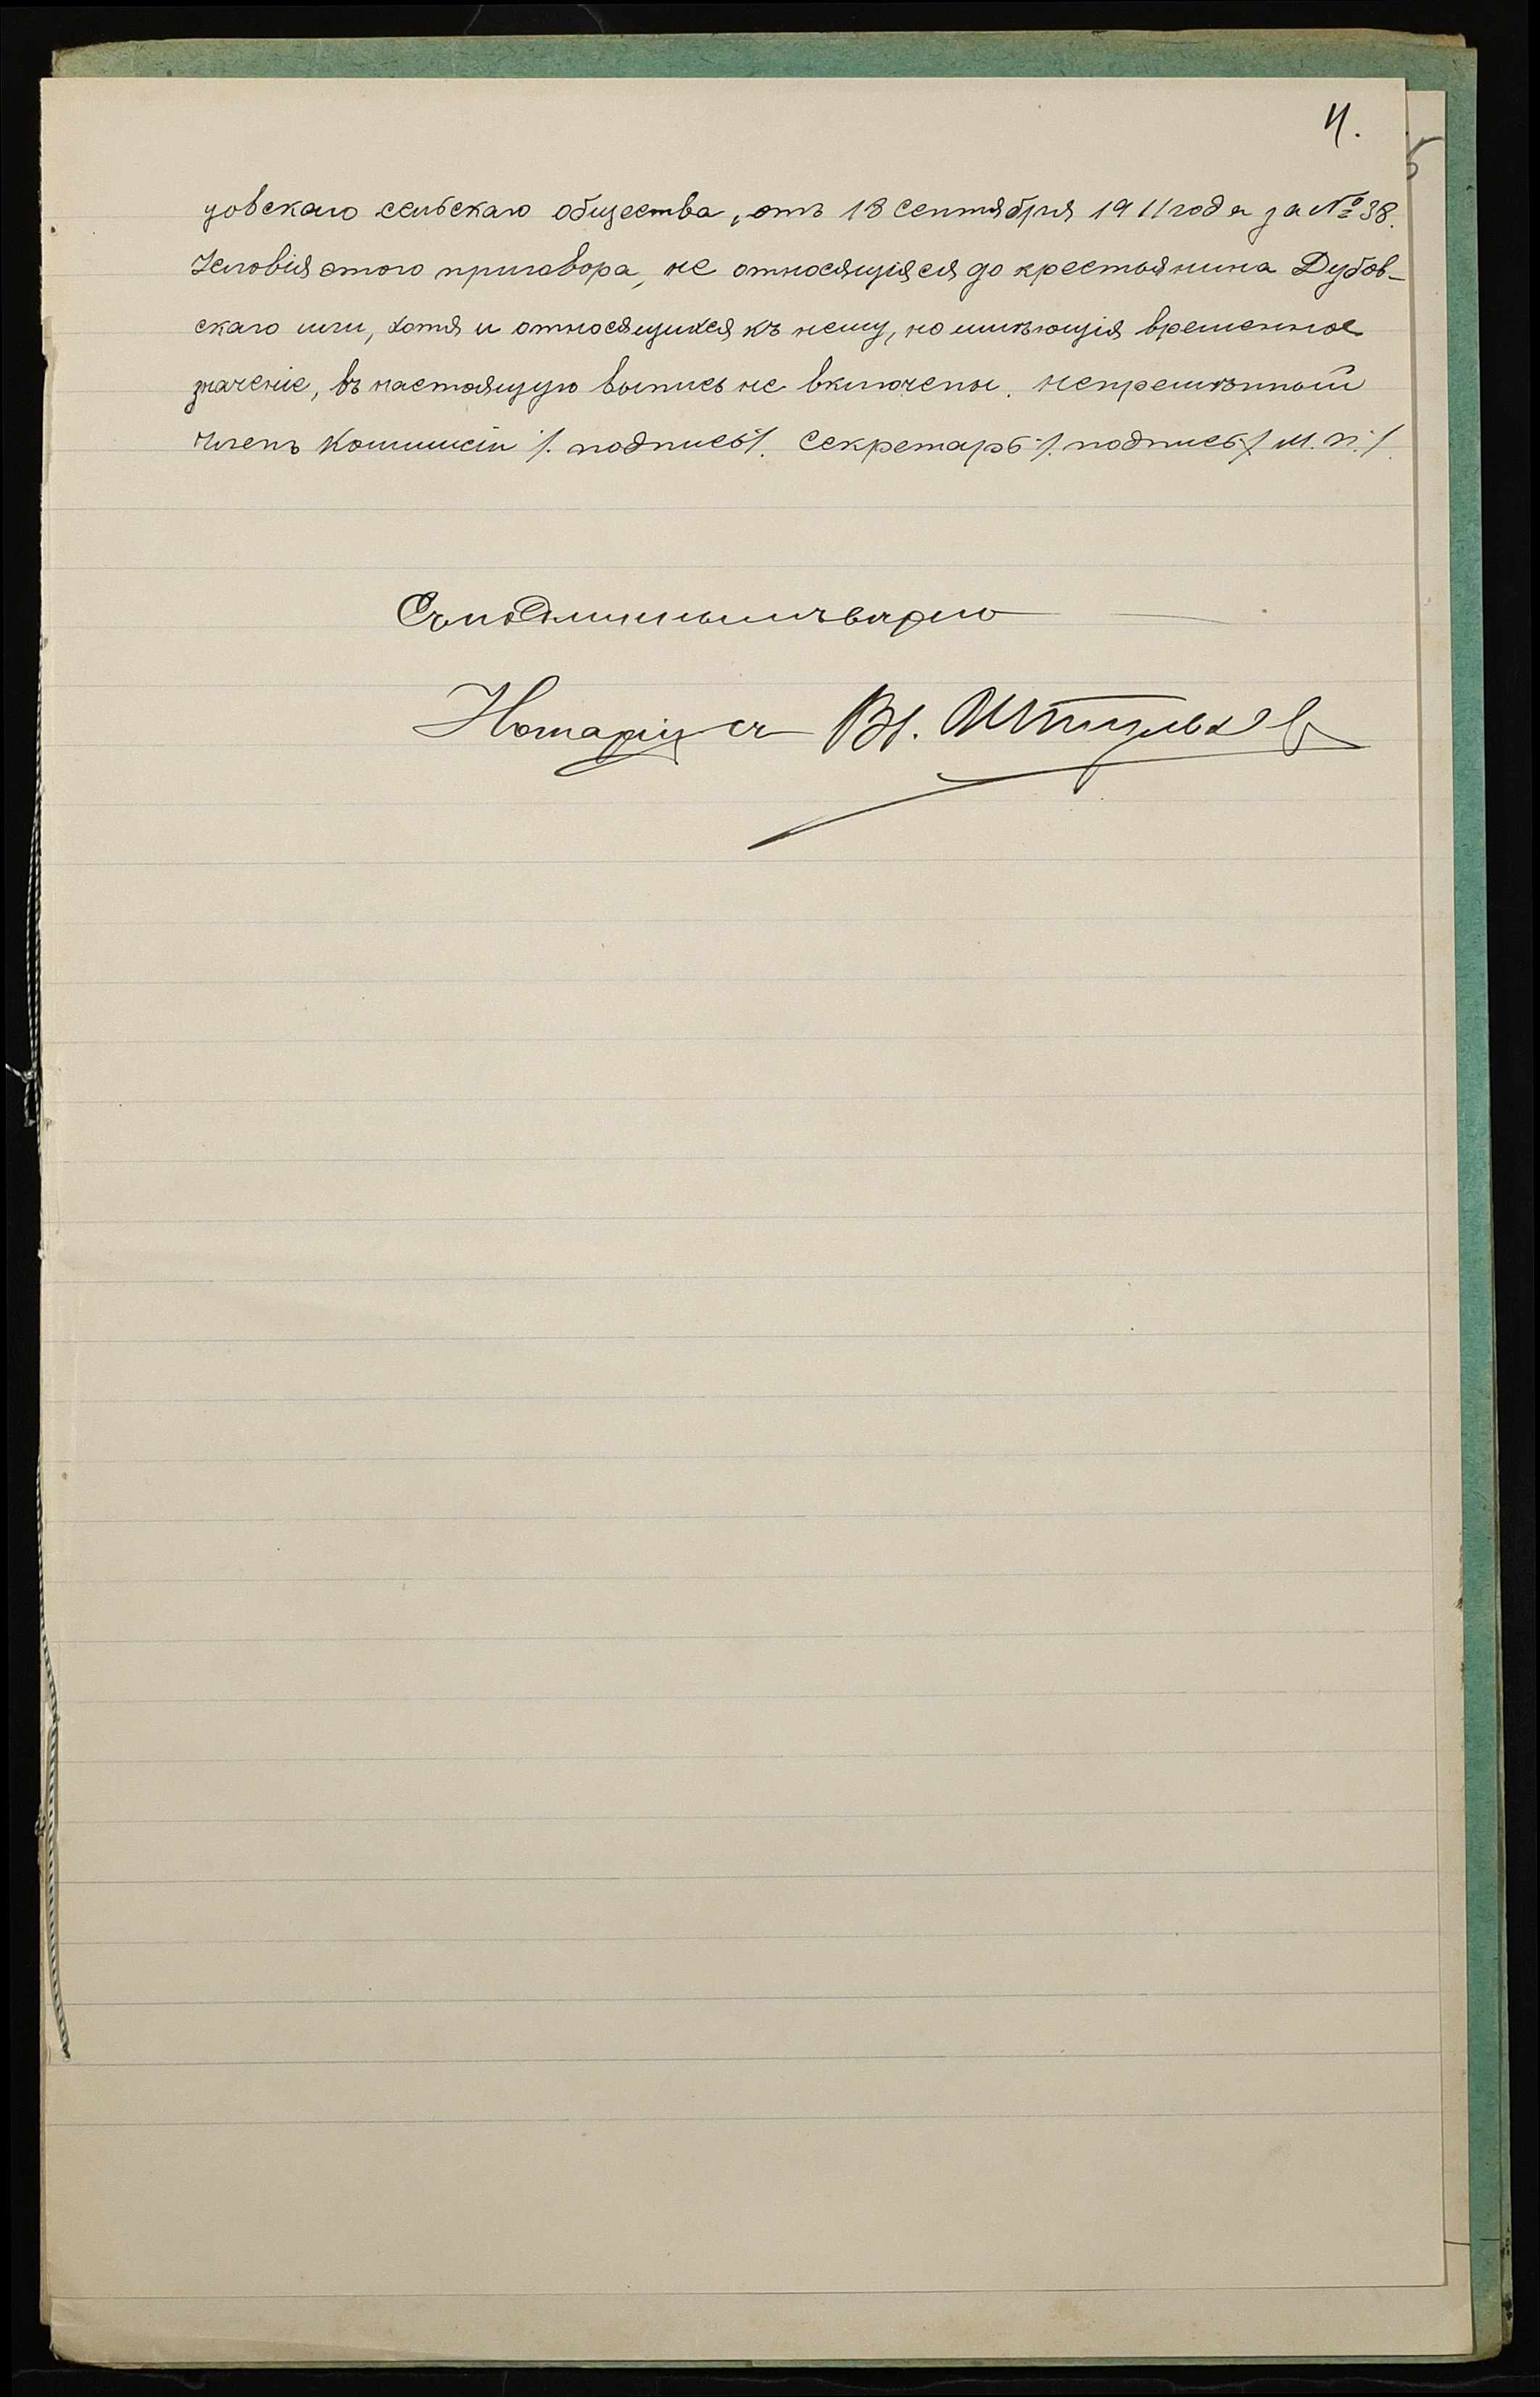 4.
цовскаго сельскаго общества, отъ 18 сентября 1911 года за № 38.
Условія этого приговора, не относящіяся до крестьянина Дубов-
скаго или, хотя и относящихся къ нему, но имѣющія временное
значеніе, въ настоящую выпись не включены. Непремѣнный
членъ Коммисіи /. подпись/. Секретарь /. подпись/ М. П. /.
Съ подлиннымъ вѣрно
Нотаріусъ Вл.